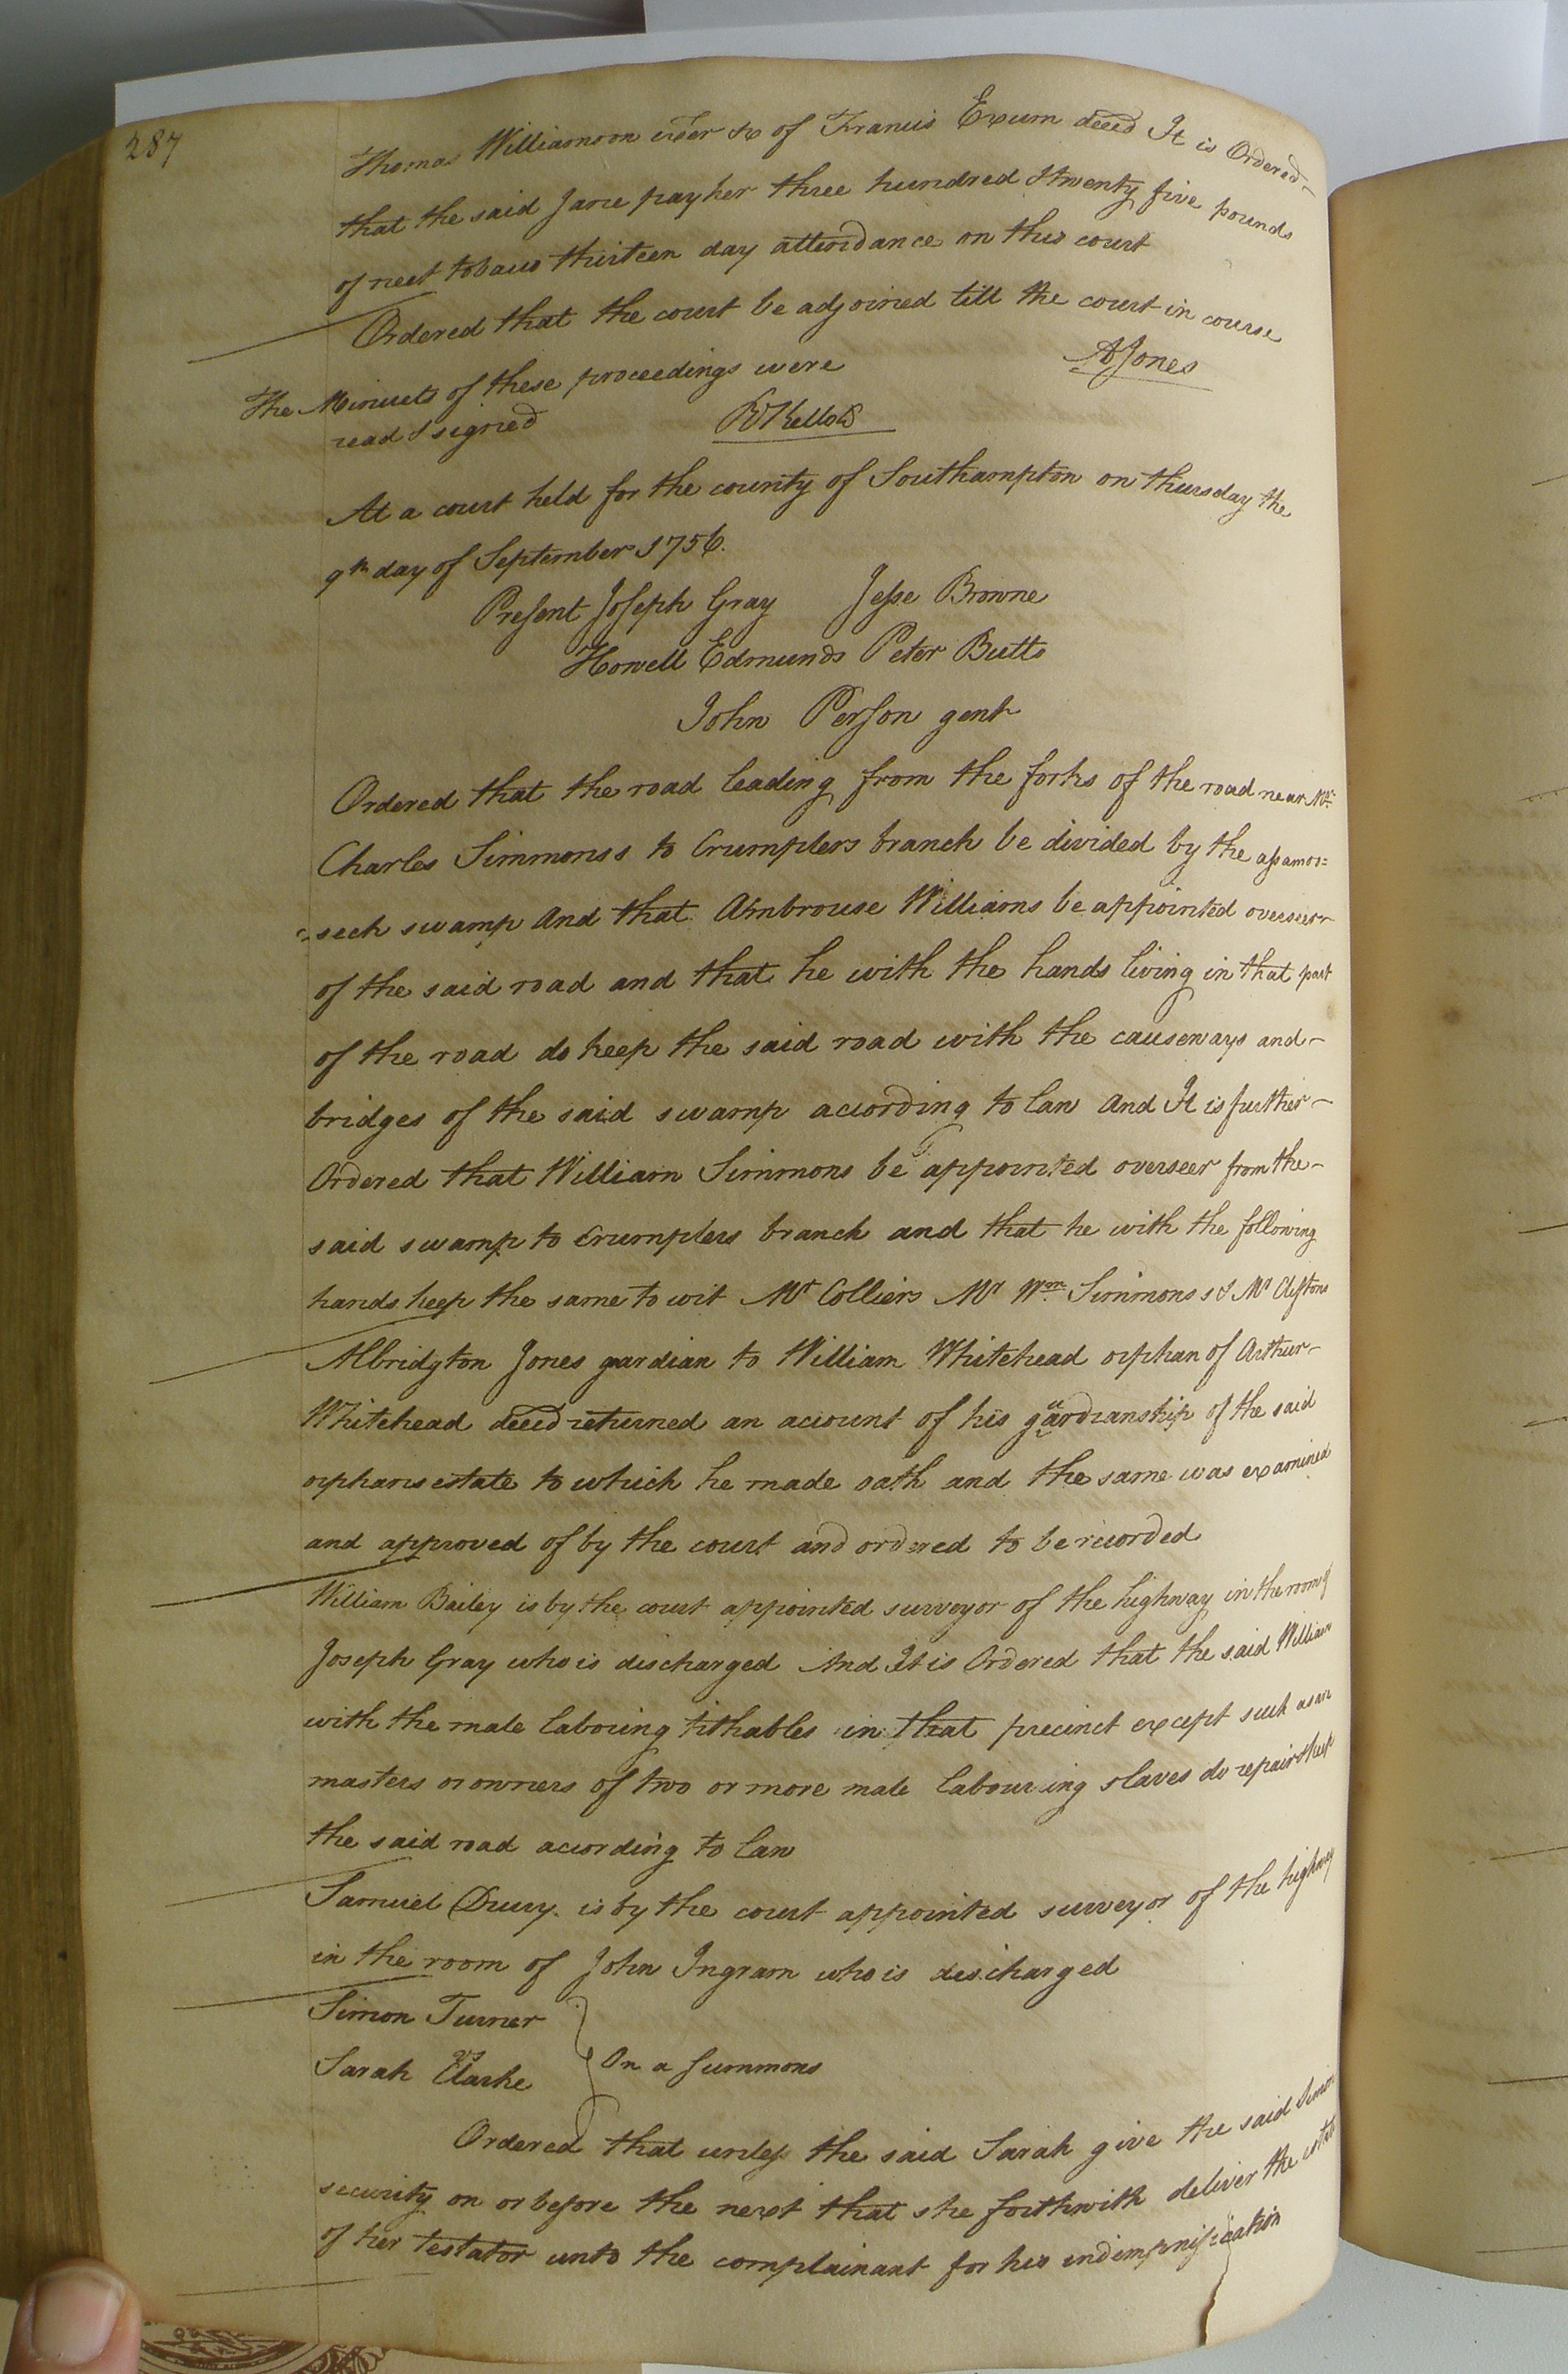 287
Thomas Williamson exer &c of Francis Exum deced It is Ordered
that the said Jane pay her three hundred & twenty five pounds
of neet tobaco thirteen day attendance on this court
Ordered that the court be adjoined till the court in course
AJones
The Minuets of these proceedings were
read & signed
RKello
At a court held for the county of Southampton on thursday the
9th day of September 1756.
Present Joseph Gray Jesse Browne
Howell Edmunds Peter Butts
John Person gent
Ordered that the road leading from the forks of the road near Mr
Charles Simmonss to Crumplers branch be divided by the assamoo=
=seck swamp And that Ambrouse Williams be appointed overseer
of the said road and that he with the hands living in that part
of the road do keep the said road with the causeways and
bridges of the said swamp acording to law And It is further
Ordered that William Simmons be appointed overseer from the
said swamp to Crumplers branch and that he with the following
hands keep the same to wit Mr Colliers Mr Wm Simmons s & Mr Cliftons
Albridgton Jones gardian to William Whitehead orphan of Arthur
Whitehead deced returned an account of his guardianship of the said
orphans estate to which he made oath and the same was examined
and approved of by the court and ordered to be recorded
William Bailey is by the court appointed surveyor of the highway in the room of
Joseph Gray who is discharged And It is Ordered that the said William
with the male laboring tithables in that precinct except such as are
masters or owners of two or more male labouring slaves do repair & keep
the said road acording to law
Samuel Drury is by the court appointed surveyor of the highway
in the room of John Ingram who is discharged
Simon Turner
vs
Sarah Clarke
On a summons
Ordered that unless the said Sarah give the said Simon
security on or before the next that she forthwith deliver the estate
of her testator unto the complainant for his indemnification